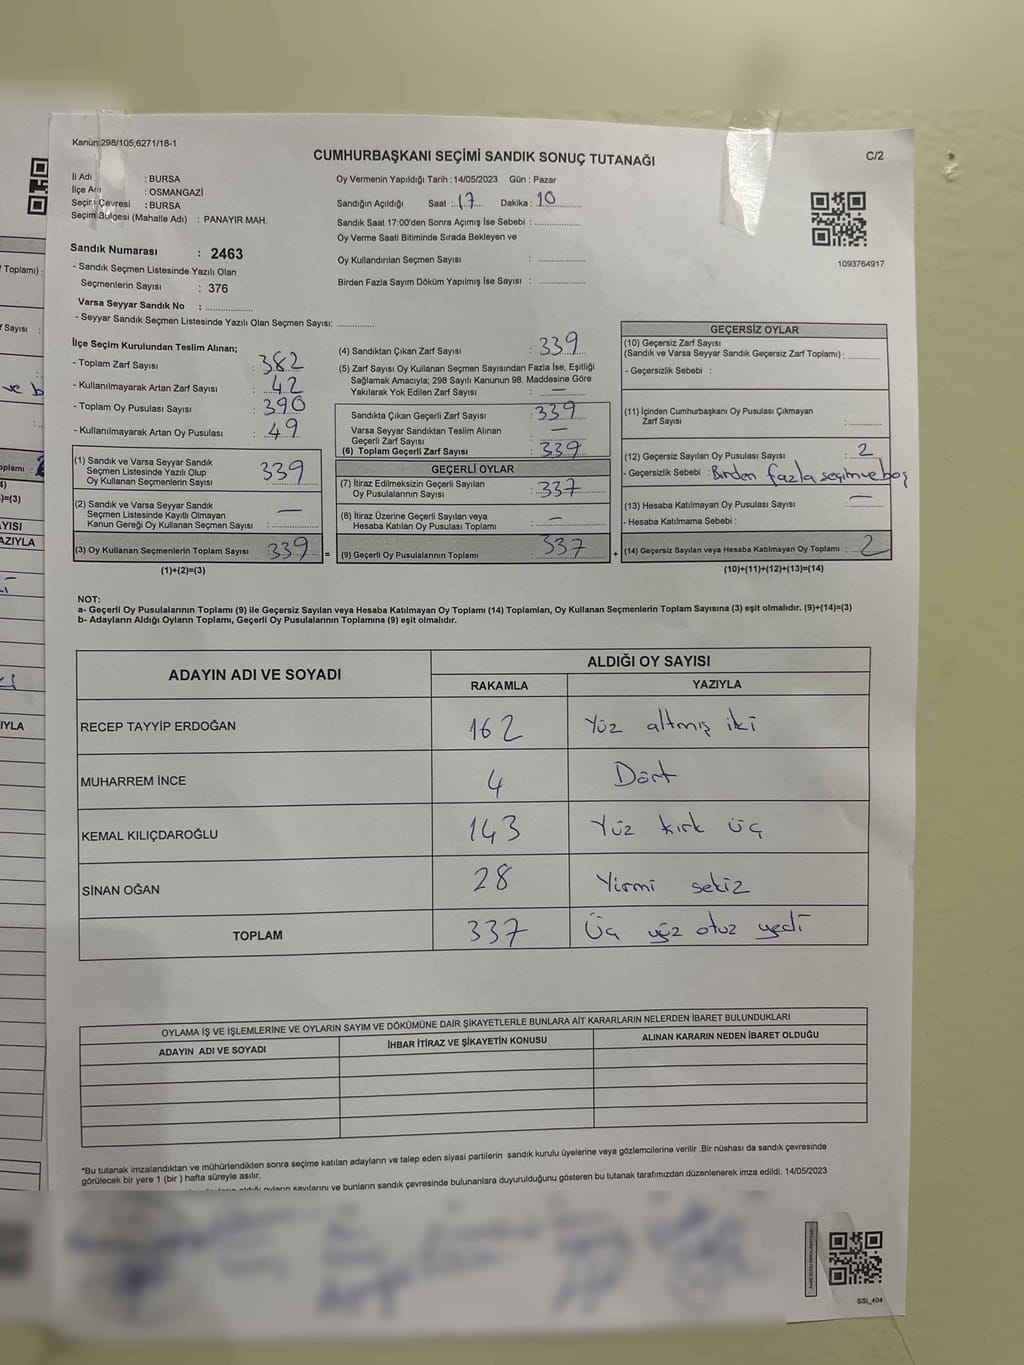 Kanun:298/105;6271/18-1
CUMHURBAŞKANI SEÇİMİ SANDIK SONUÇ TUTANAĞI
C/2
İl Adı : BURSA
İlçe Adı : OSMANGAZİ
Seçim Çevresi : BURSA
Seçim Bölgesi (Mahalle Adı) : PANAYIR MAH.
Oy Vermenin Yapıldığı Tarih : 14/05/2023 Gün : Pazar
Sandığın Açıldığı Saat : 17 Dakika : 10
Sandık Saat 17:00'den Sonra Açımış İse Sebebi :
Oy Verme Saati Bitiminde Sırada Bekleyen ve
Oy Kullandırılan Seçmen Sayısı :
Birden Fazla Sayım Döküm Yapılmış İse Sayısı :
1093764917
Sandık Numarası : 2463
- Sandık Seçmen Listesinde Yazılı Olan
Seçmenlerin Sayısı : 376
Varsa Seyyar Sandık No :
- Seyyar Sandık Seçmen Listesinde Yazılı Olan Seçmen Sayısı:
İlçe Seçim Kurulundan Teslim Alınan;
- Toplam Zarf Sayısı : 382
- Kullanılmayarak Artan Zarf Sayısı : 42
- Toplam Oy Pusulası Sayısı : 390
- Kullanılmayarak Artan Oy Pusulası : 49
(1) Sandık ve Varsa Seyyar Sandık
Seçmen Listesinde Yazılı Olup
Oy Kullanan Seçmenlerin Sayısı : 339
(2) Sandık ve Varsa Seyyar Sandık
Seçmen Listesinde Kayıtlı Olmayan
Kanun Gereği Oy Kullanan Seçmen Sayısı : —
(3) Oy Kullanan Seçmenlerin Toplam Sayısı : 339 =
(1)+(2)=(3)
(4) Sandıktan Çıkan Zarf Sayısı : 339
(5) Zarf Sayısı Oy Kullanan Seçmen Sayısından Fazla İse, Eşitliği
Sağlamak Amacıyla; 298 Sayılı Kanunun 98. Maddesine Göre
Yakılarak Yok Edilen Zarf Sayısı : —
Sandıkta Çıkan Geçerli Zarf Sayısı : 339
Varsa Seyyar Sandıktan Teslim Alınan
Geçerli Zarf Sayısı : —
(6) Toplam Geçerli Zarf Sayısı : 339
GEÇERLİ OYLAR
(7) İtiraz Edilmeksizin Geçerli Sayılan
Oy Pusulalarının Sayısı : 337
(8) İtiraz Üzerine Geçerli Sayılan veya
Hesaba Katılan Oy Pusulası Toplamı : —
(9) Geçerli Oy Pusulalarının Toplamı : 337 +
GEÇERSİZ OYLAR
(10) Geçersiz Zarf Sayısı
(Sandık ve Varsa Seyyar Sandık Geçersiz Zarf Toplamı) :
- Geçersizlik Sebebi :
(11) İçinden Cumhurbaşkanı Oy Pusulası Çıkmayan
Zarf Sayısı :
(12) Geçersiz Sayılan Oy Pusulası Sayısı : 2
- Geçersizlik Sebebi : Birden fazla seçim ve boş
(13) Hesaba Katılmayan Oy Pusulası Sayısı : —
- Hesaba Katılmama Sebebi :
(14) Geçersiz Sayılan veya Hesaba Katılmayan Oy Toplamı : 2
(10)+(11)+(12)+(13)=(14)
NOT:
a- Geçerli Oy Pusulalarının Toplamı (9) ile Geçersiz Sayılan veya Hesaba Katılmayan Oy Toplamı (14) Toplamları, Oy Kullanan Seçmenlerin Toplam Sayısına (3) eşit olmalıdır. (9)+(14)=(3)
b- Adayların Aldığı Oyların Toplamı, Geçerli Oy Pusulalarının Toplamına (9) eşit olmalıdır.
ADAYIN ADI VE SOYADI
ALDIĞI OY SAYISI
RAKAMLA YAZIYLA
RECEP TAYYİP ERDOĞAN 162 Yüz altmış iki
MUHARREM İNCE 4 Dört
KEMAL KILIÇDAROĞLU 143 Yüz kırk üç
SİNAN OĞAN 28 Yirmi sekiz
TOPLAM 337 Üç yüz otuz yedi
OYLAMA İŞ VE İŞLEMLERİNE VE OYLARIN SAYIM VE DÖKÜMÜNE DAİR ŞİKAYETLERLE BUNLARA AİT KARARLARIN NELERDEN İBARET BULUNDUKLARI
ADAYIN ADI VE SOYADI İHBAR İTİRAZ VE ŞİKAYETİN KONUSU ALINAN KARARIN NEDEN İBARET OLDUĞU
*Bu tutanak imzalandıktan ve mühürlendikten sonra seçime katılan adayların ve talep eden siyasi partilerin sandık kurulu üyelerine veya gözlemcilerine verilir .Bir nüshası da sandık çevresinde
görülecek bir yere 1 (bir ) hafta süreyle asılır.
aldığı oyların sayılarını ve bunların sandık çevresinde bulunanlara duyurulduğunu gösteren bu tutanak tarafımızdan düzenlenerek imza edildi. 14/05/2023
SSI_404